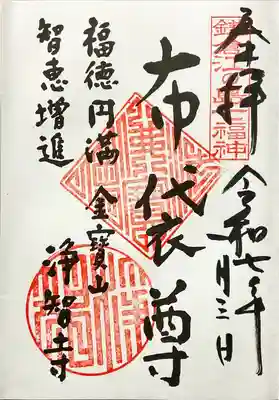 奉拝 令和七年 月三日
鎌倉江ノ島七福神
布袋尊
福徳円満 金寶山
智恵増進 淨智寺